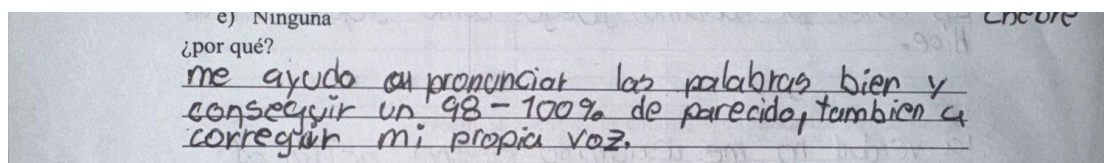 e) Ninguna
¿por qué?
me ayudo a pronunciar las palabras bien y
conseguir un 98-100% de parecido, tambien a
corregir mi propia voz.